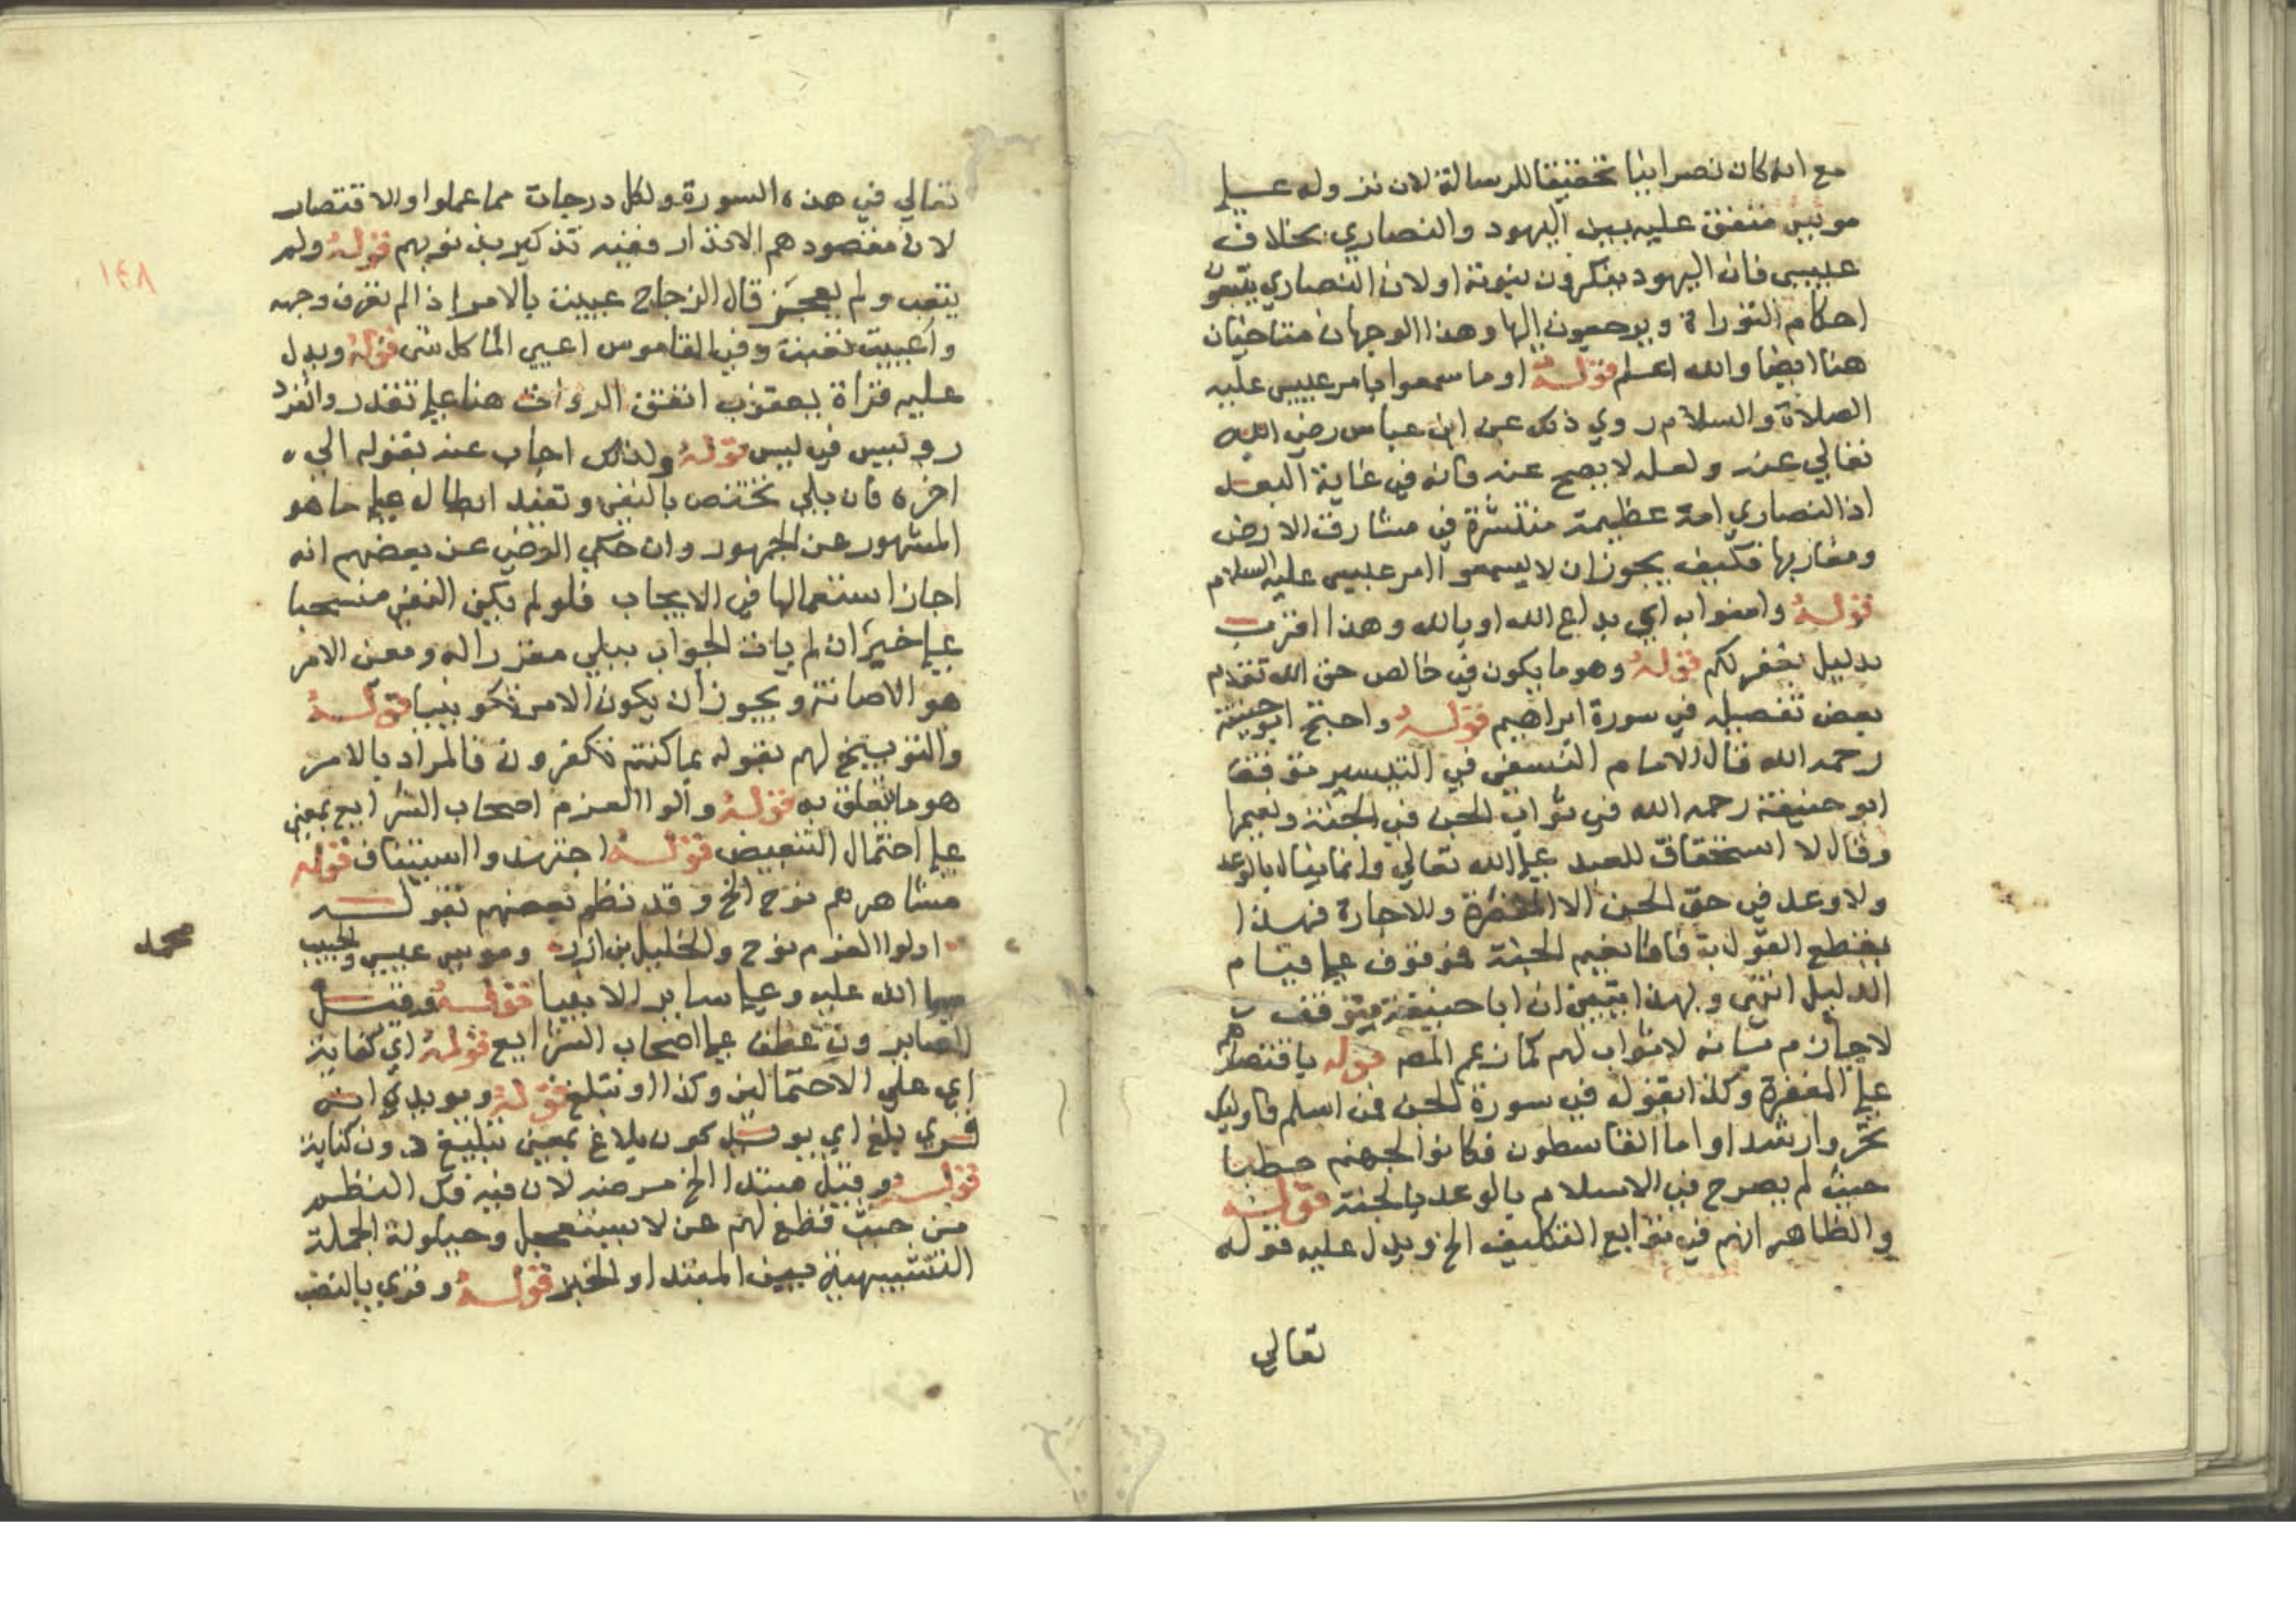 مع انه كان نصرانيا تحقيقا للرسالة لان نزوله علي
موسي متفق عليه بين اليهود والنصاري بخلاف
عيسي فان اليهود ينكرون نبوته او لان النصاري يتبعون
احكام التوراة ويرجعون اليها وهذا الوجهان متاحيان
هنا ايضا والله اعلم قوله او ما سمعوا بامر عيسي عليه
الصلاة والسلام روي ذلك عن ابن عباس رضي الله
تعالي عنه ولعله لا يصح عنه فانه في غاية البعد
اذ النصاري امة عظيمة منتشرة في مشارق الارض
ومغاربها فكيف يجوز ان لا يسمعوا امر عيسي عليه السلام
قوله وامنوا به اي بداع الله او بالله وهذا اقرب
بدليل يغفر لكم قوله وهو ما يكون في خالص حق الله تقدم
بعض تفصيله في سورة ابراهيم قوله واحتج ابو حنيفة
رحمه الله قال الامام النسفي في التيسير توقف
ابو حنيفة رحمه الله في ثواب الجن في الجنة ونعيمها
وقال لا استحقاق للعبد علي الله تعالي وانما ينال بالوعد
ولا وعد في حق الجن الا المغفرة والاجارة فهذا
يقطع القول به فاما نعيم الجنة فموقوف علي قيام
الدليل انتهي وبهذا تبين ان ابا حنيفة متوقف
لا جازم بانه لا ثواب لهم كما زعم المصـ قوله باقتصارهم
علي المغفرة وكذا بقوله في سورة الجن فمن اسلم فاوليك
تحروا رشدا واما القاسطون فكانوا لجهنم حطبا
حيث لم يصرح في الاسلام بالوعد بالجنة قوله
والظاهر انهم في توابع التكليف الخ ويدل عليه قوله
تعالي
تعالي في هذه السورة ولكل درجات مما عملوا والاقتصار
لان مقصودهم الانذار ففيه تذكير بذنوبهم قوله ولم
يتعب ولم يعجز قال الزجاج عييت بالامر اذا لم تعرف وجهه
واعييت تعبت وفي القاموس اعيي الماشي كل قوله ويدل
عليه قراة يعقوب اتفق الرواة هنا علي تقدر وانفرد
رويس في ليس قوله ولذلك اجاب عنه بقوله الي
اخره فان بلي تختص بالنفي وتفيد ابطاله علي ما هو
المشهور عن الجمهور وان حكي الرضي عن بعضهم انه
اجاز استعمالها في الايجاب فلو لم يكن النفي منسحبا
علي خبر ان لم يات الجواب ببلي مقررا له ومعني الامر
هو الاهانة ويجوز ان يكون الامر تكوينيا قوله
والتوبيخ لهم بقوله بما كنتم تكفرون فالمراد بالامر
هو ما يتعلق به قوله واولوا العزم اصحاب الشرايع يعني
علي احتمال التبعيض قوله اجتهدوا استيناف قوله
مشاهرهم نوح الخ وقد نظم بعضهم بقوله
اولوا العزم نوح والخليل بن ازر وموسي عيسي والحبيب
محمد
صلي الله عليه وعلي ساير الانبيا قوله وقيل
الصابرون عطف علي اصحاب الشرايع قوله اي كفاية
اي علي الاحتمالين وكذا او تبليغ قوله ويويده انه
قري بلغ اي يويد كون بلاغ بمعني تبليغ دون كفاية
قوله وقيل مبتدا الخ مرضه لان فيه فك النظم
من حيث قطع لهم عن لا تستعجل وحيلولة الجملة
التشبيهية بين المبتدا والخبر قوله وقري بالنصب
١٤٨